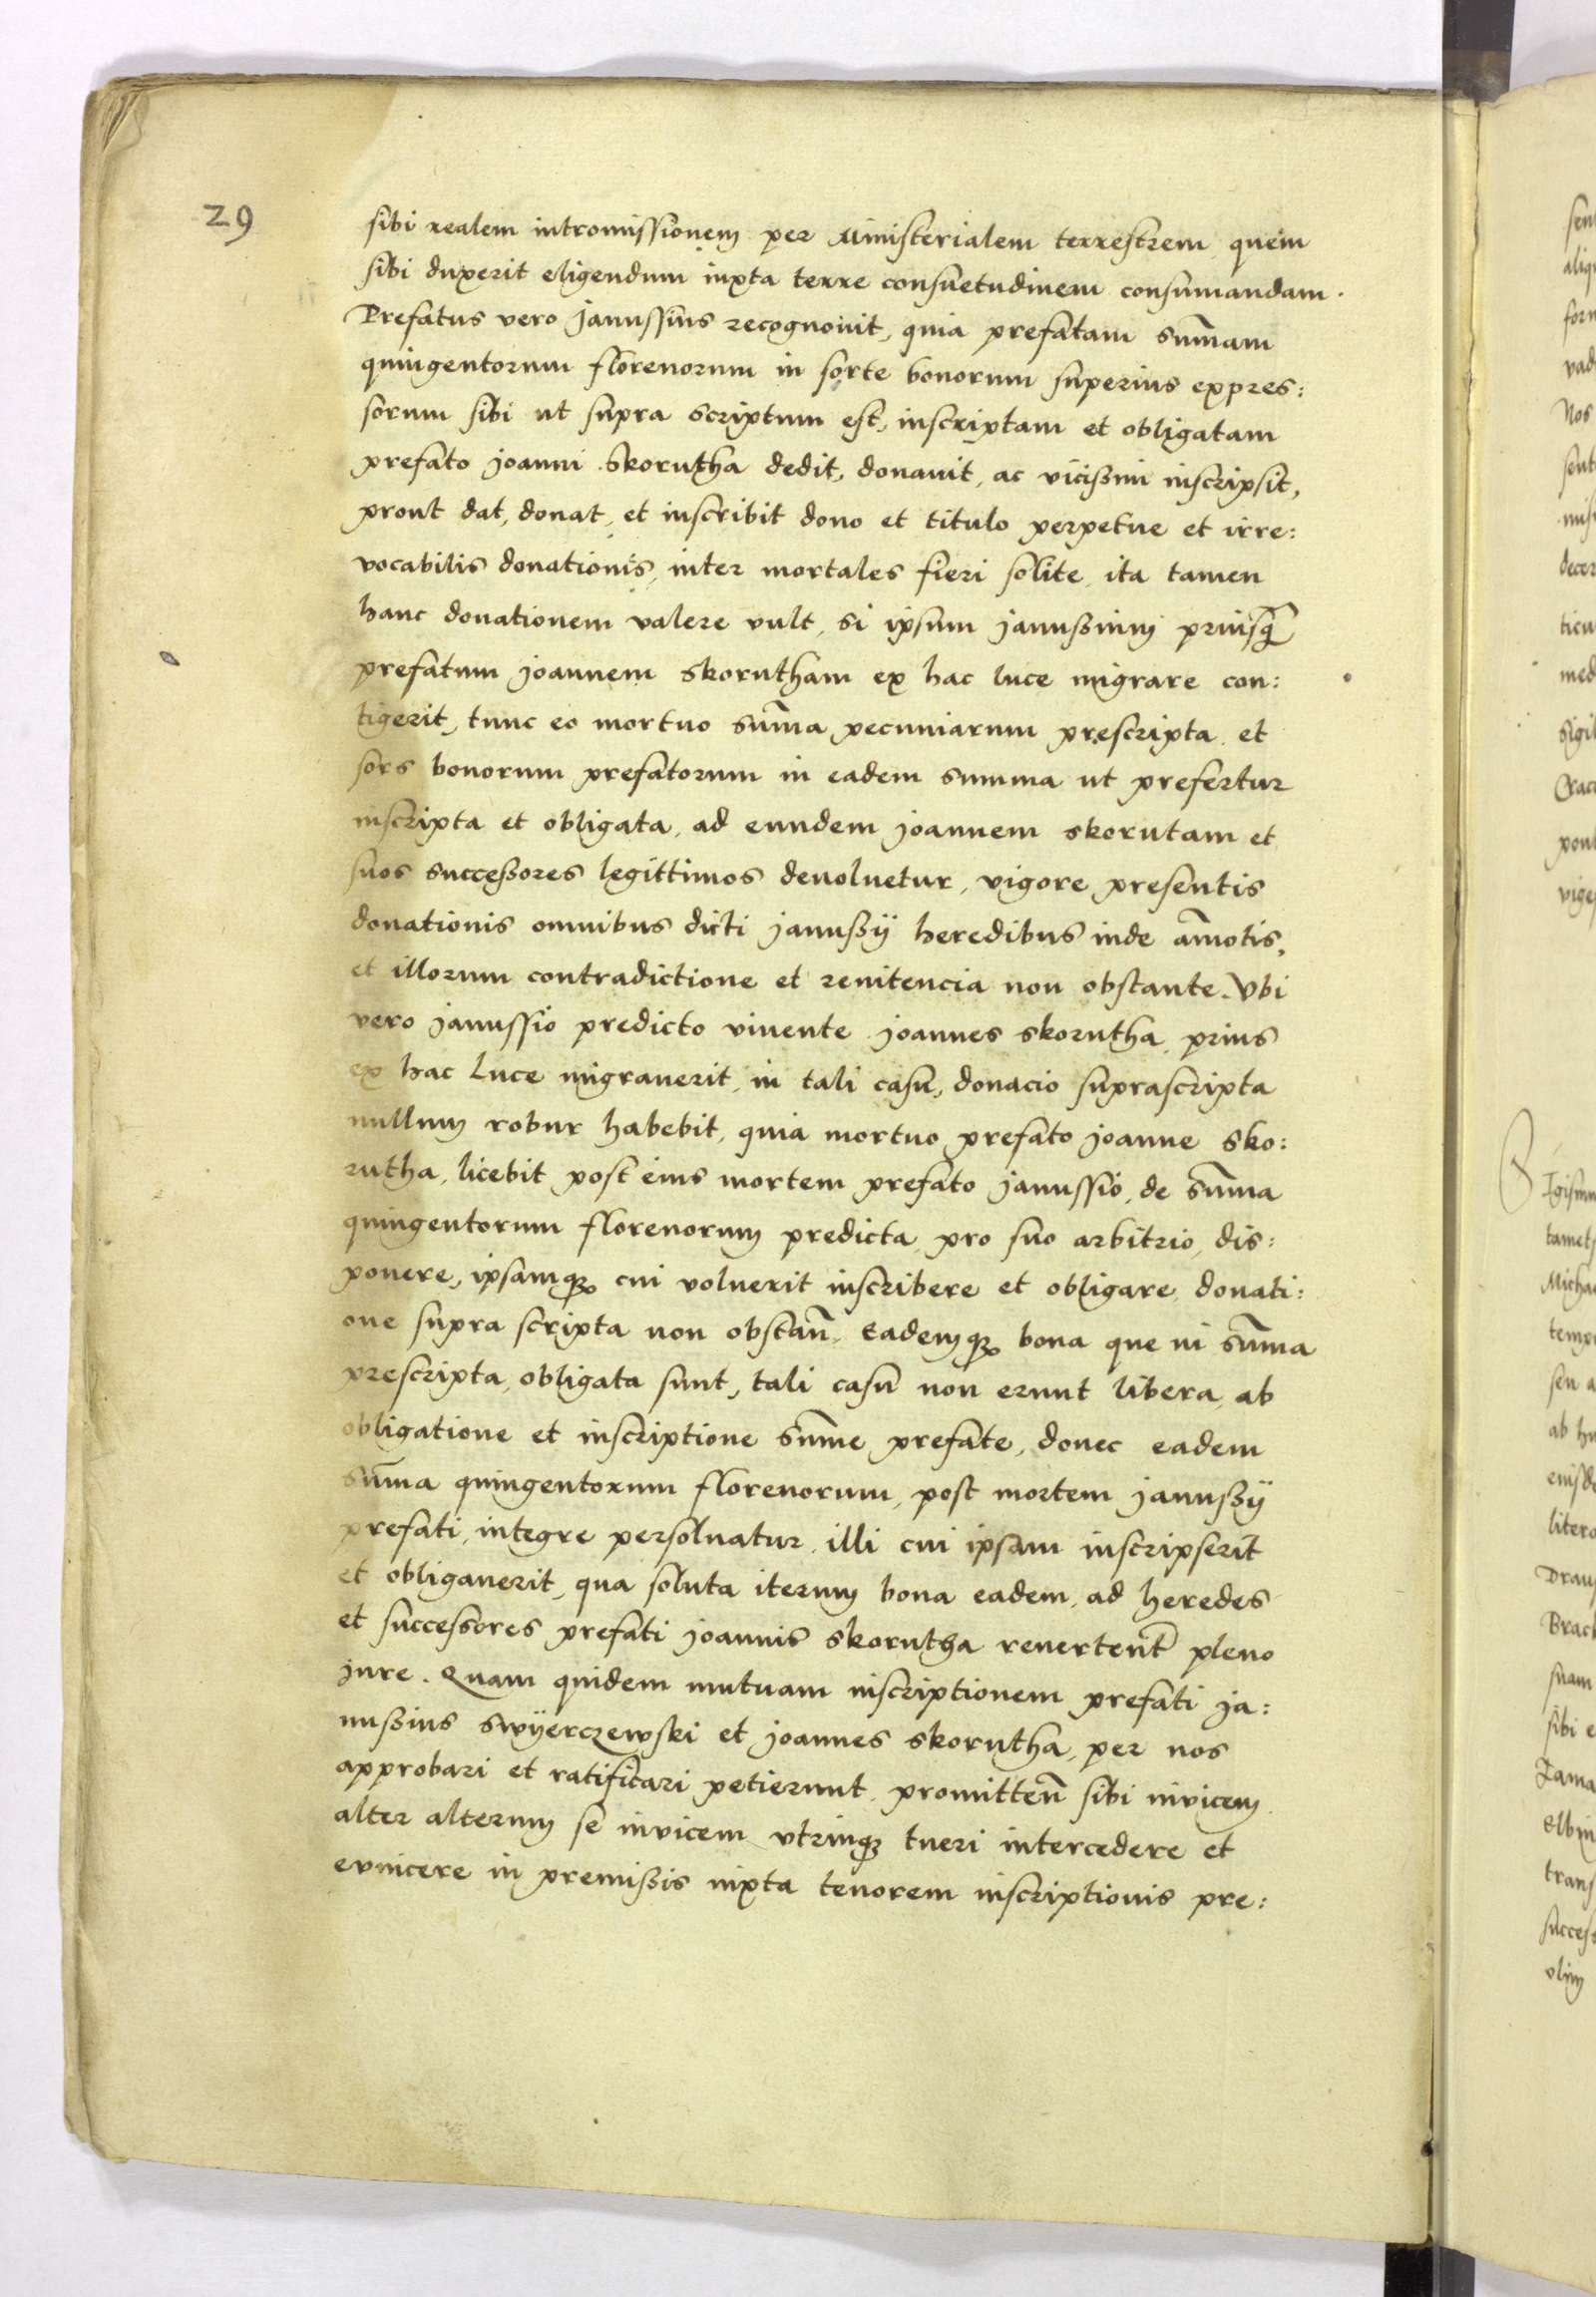 29
sibi realem intromissionem per Ministerialem terrestrem quem
sibi duxerit eligendum iuxta terre consuetudinem consumandam.
Prefatus vero Janussius recognouit, quia prefatam sum̄am
quingentorum florenorum in sorte bonorum superius expres:
sorum sibi ut supra scriptum est, inscriptam et obligatam
prefato Joanni Skorutha dedit, donauit, ac vicißim inscripsit,
prout dat, donat, et inscribit dono et titulo perpetue et irre:
vocabilis donationis, inter mortales fieri solite, ita tamen
hanc donationem valere vult, si ipsum Janußium priusq̄
prefatum Joannem Skorutham ex hac luce migrare con:
tigerit, tunc eo mortuo sum̄a pecuniarum prescripta et
sors bonorum prefatorum in eadem summa ut prefertur
inscripta et obligata, ad eundem Joannem Skorutam et
suos succeßores legittimos deuoluetur, vigore presentis
donationis omnibus dicti Janußÿ heredibus inde am̄otis,
et illorum contradictione et renitencia non obstante. Vbi
vero Janussio predicto viuente Joannes Skorutha prius
ex hac luce migrauerit, in tali casu, donacio suprascripta
nullum robur habebit, quia mortuo prefato Joanne Sko:
rutha, licebit post eius mortem prefato Janussio, de sum̄a
quingentorum florenorum predicta pro suo arbitrio, dis:
ponere, ipsamqꝫ cui voluerit inscribere et obligare donati:
one supra scripta non obstan̄. Eademqꝫ bona que in sum̄a
prescripta, obligata sunt, tali casu non erunt libera, ab
obligatione et inscriptione sum̄e prefate, donec eadem
sum̄a quingentorum florenorum, post mortem Janußÿ
prefati, integre persoluatur illi cui ipsam inscripserit
et obligauerit, qua soluta iterum bona eadem, ad heredes
et successores prefati Joannis Skorutha reuertent̄ pleno
jure. Quam quidem mutuam inscriptionem prefati Ja:
nußius Swÿerczewski et Joannes Skorutha, per nos
approbari et ratificari petierunt promitten̄ sibi inuicem
alter alterum se inuicem vtrinqꝫ tueri intercedere et
euincere in premißis iuxta tenorem inscriptionis pre: